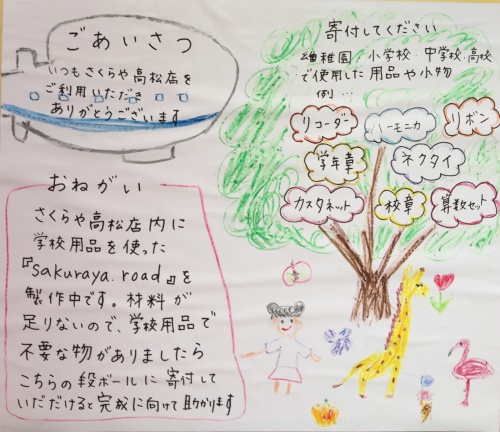 ごあいさつ
いつもさくらや高松店を
ご利用いただき
ありがとうございます
おねがい
さくらや高松店内に
学校用品を使った
『sakuraya road』を
製作中です。材料が
足りないので、学校用品で
不要な物がありましたら
こちらの段ボールに寄付して
いただけると完成に向けて助かります
寄付してください
幼稚園・小学校・中学校・高校
で使用した用品や小物
例…
リコーダー
ハーモニカ
リボン
学年章
ネクタイ
カスタネット
校章
算数セット